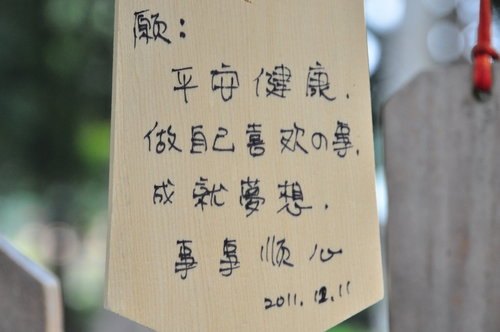 願：
平安健康.
做自己喜欢の事.
成就夢想.
事事顺心
2011.12.11